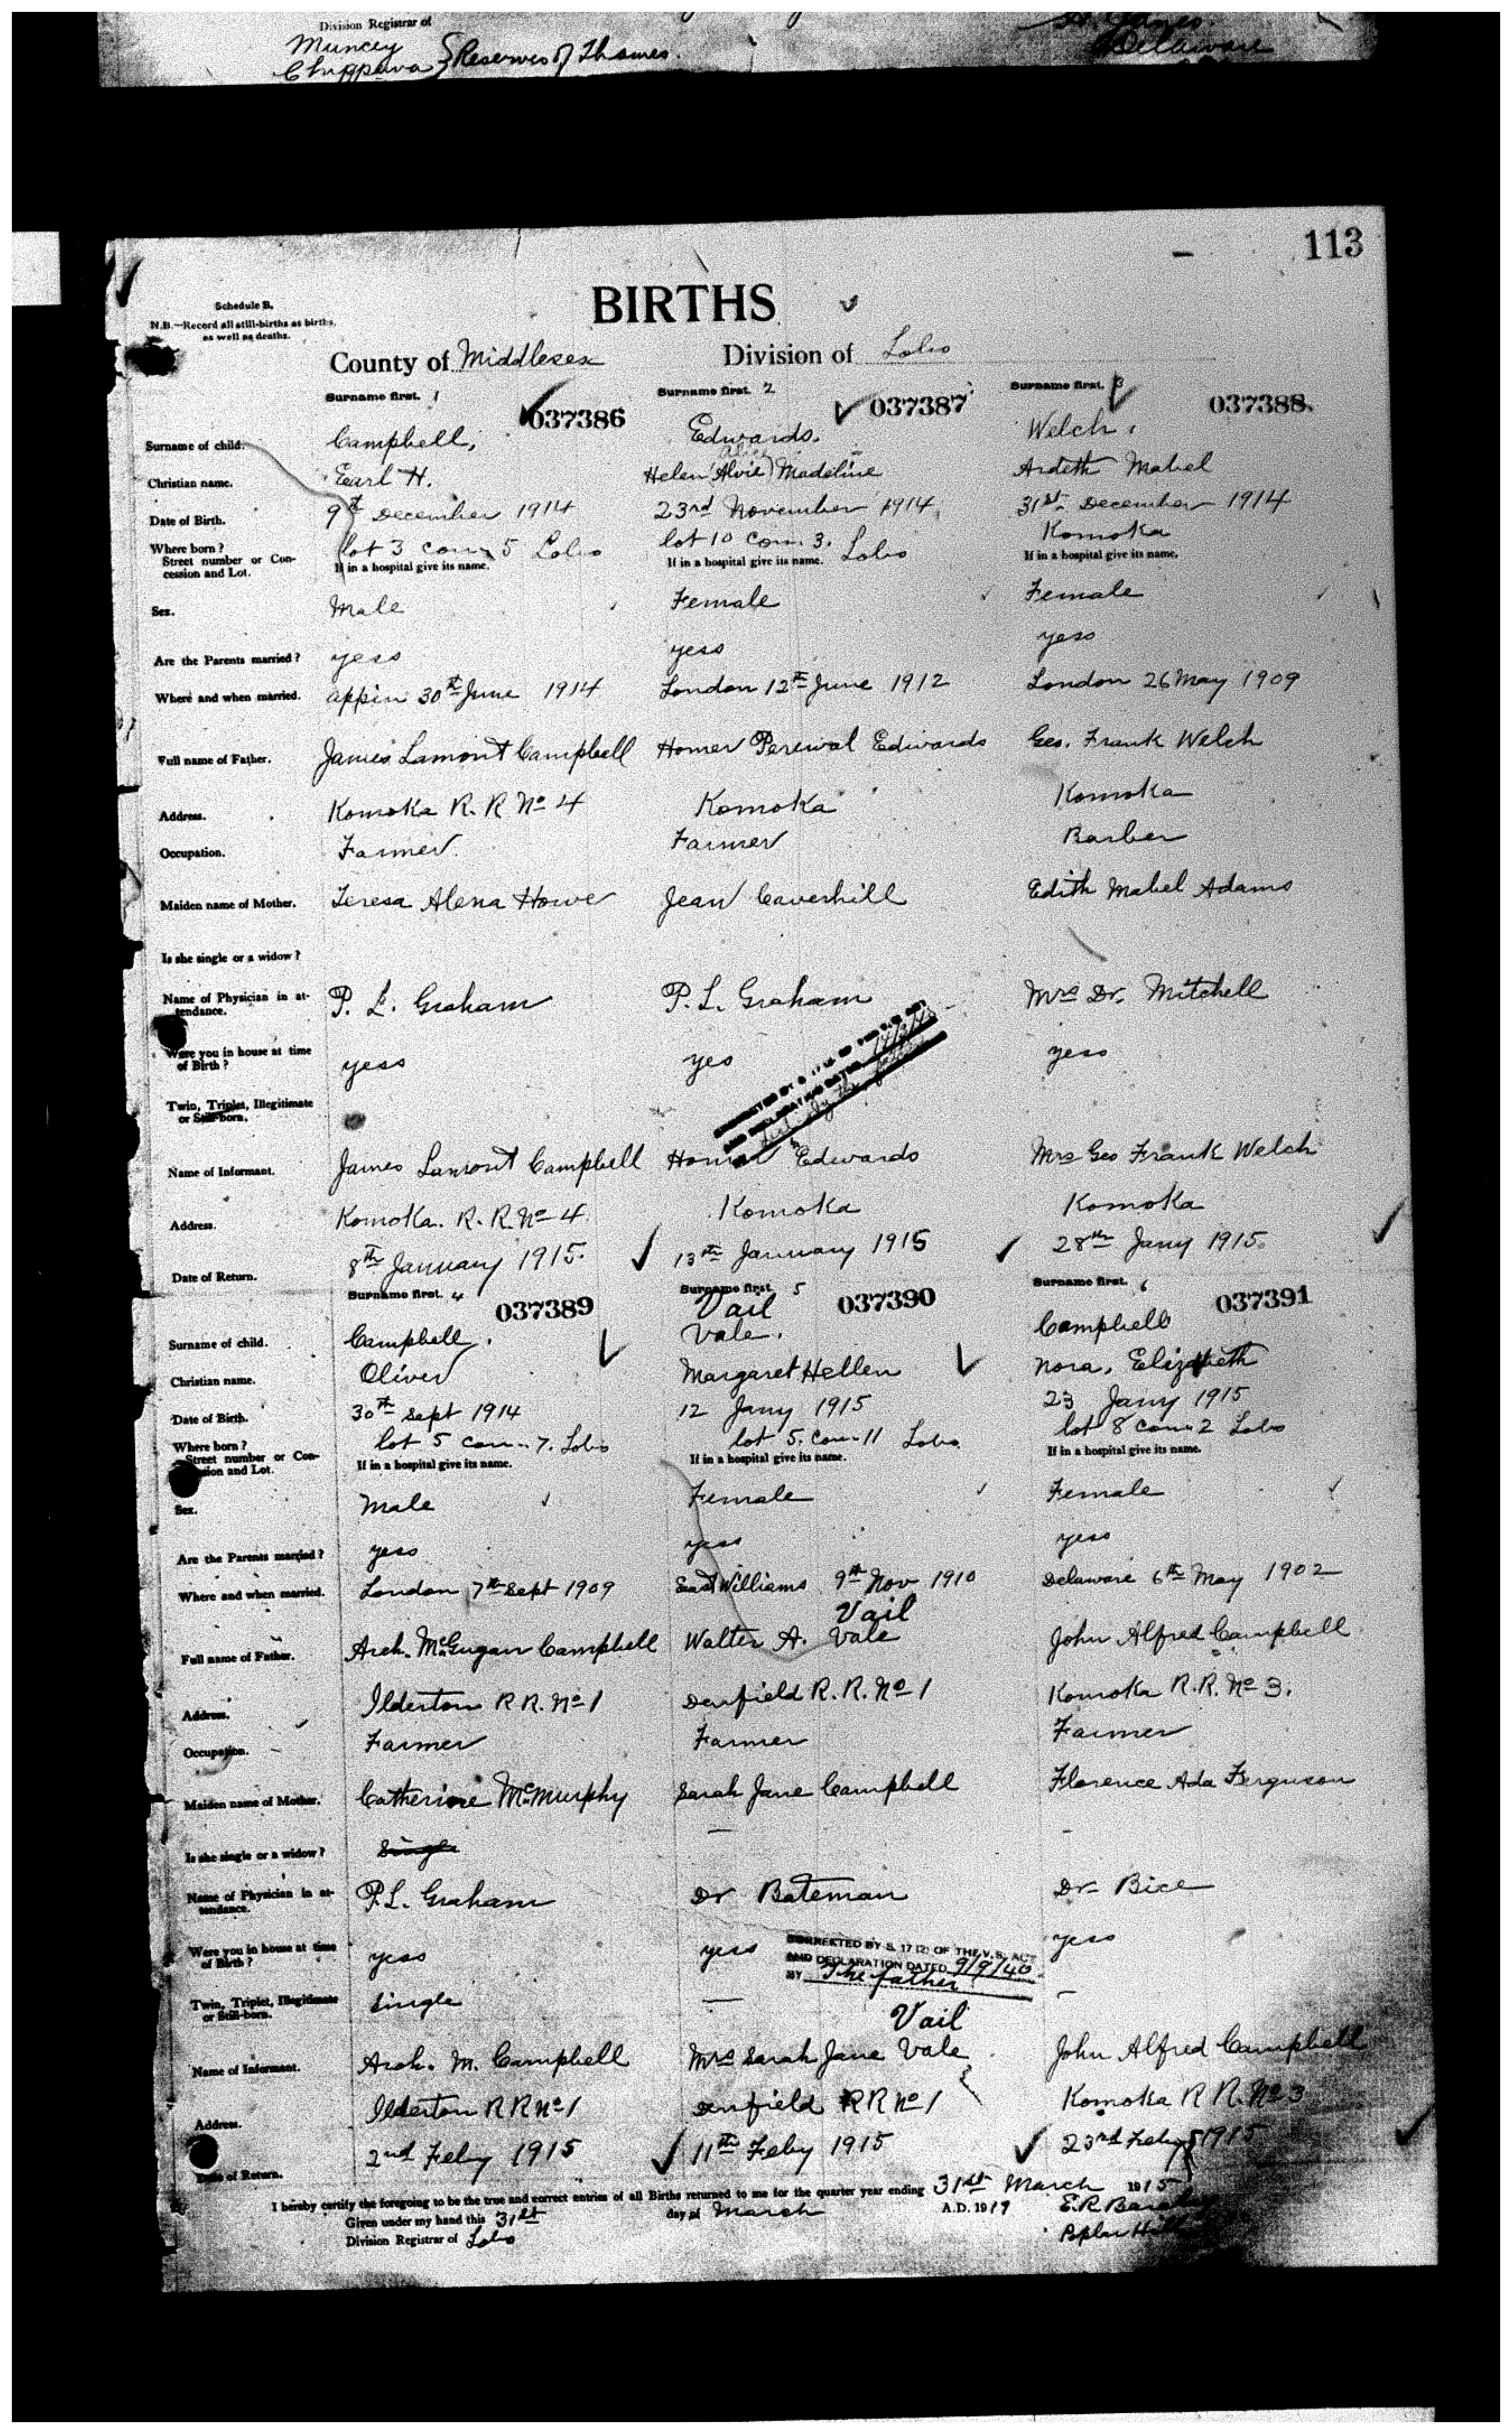 Division Registrar of
Muncey
Chippewa } Reserves of Thames.
Delaware
113
BIRTHS
Schedule B.
N.B.—Record all still-births as births, as well as deaths.
County of Middlesex Division of Lobo
Surname first. 1 037386 Surname first. 2 037387 Surname first. 3 037388
Surname of child. Campbell, Edwards. Welch,
Alice
Christian name. Earl H. Helen (Alvie) Madeline Ardeth Mabel
Date of Birth. 9th December 1914 23rd November 1914 31st December 1914
Where born? Street number or Concession and Lot. lot 3 con 5 Lobo lot 10 con. 3. Lobo Komoka
If in a hospital give its name. If in a hospital give its name. If in a hospital give its name.
Sex. Male Female Female
Are the Parents married? yess yess yess
Where and when married. Appin 30th June 1914 London 12th June 1912 London 26 May 1909
Full name of Father. James Lamont Campbell Homer Percival Edwards Geo. Frank Welch
Address. Komoka R. R No 4 Komoka Komoka
Occupation. Farmer Farmer Barber
Maiden name of Mother. Teresa Alena Howe Jean Caverhill Edith Mabel Adams
Is she single or a widow?
Name of Physician in attendance. P. L. Graham P. L. Graham Mrs Dr. Mitchell
Were you in house at time of Birth? yess yes yess
Twin, Triplet, Illegitimate or Still-born.
Name of Informant. James Lamont Campbell Homer Edwards Mrs Geo Frank Welch
Address. Komoka. R. R. No 4 Komoka Komoka
Date of Return. 8th January 1915. 13th January 1915 28th Jany 1915.
Surname first. 4 037389 Surname first. 5 037390 Surname first. 6 037391
Vail
Surname of child. Campbell. Vale. Campbell
Christian name. Oliver Margaret Hellen Nora, Elizabeth
Date of Birth. 30th Sept 1914 12 Jany 1915 23 Jany 1915
Where born? Street number or Concession and Lot. lot 5 con. 7. Lobo lot 5. con 11 Lobo lot 8 con 2 Lobo
If in a hospital give its name. If in a hospital give its name. If in a hospital give its name.
Sex. Male Female Female
Are the Parents married? yess yess yess
Where and when married. London 7th Sept 1909 East Williams 9th Nov 1910 Delaware 6th May 1902
Vail
Full name of Father. Arch. McGugan Campbell Walter A. Vale John Alfred Campbell
Address. Ilderton R R. No 1 Denfield R. R. No 1 Komoka R.R. No 3.
Occupation. Farmer Farmer Farmer
Maiden name of Mother. Catherine McMurphy Sarah Jane Campbell Florence Ada Ferguson
Is she single or a widow? Single — –
Name of Physician in attendance. P. L. Graham Dr Bateman Dr Bice
Were you in house at time of Birth? yess yess yess
CORRECTED BY S. 17 (2) OF THE V. S. ACT
AND DECLARATION DATED 9/9/40
BY The father
Twin, Triplet, Illegitimate or Still-born. Single — –
Vail
Name of Informant. Arch. M. Campbell Mrs Sarah Jane Vale John Alfred Campbell
Address. Ilderton R R No 1 Denfield R R No 1 Komoka R R. No 3
Date of Return. 2nd Feby 1915 11th Feby 1915 23rd Feby 1915
I hereby certify the foregoing to be the true and correct entries of all Births returned to me for the quarter year ending 31st March 1915
Given under my hand this 31st day of March A.D. 1919 E.R.
Division Registrar of Lobo Poplar